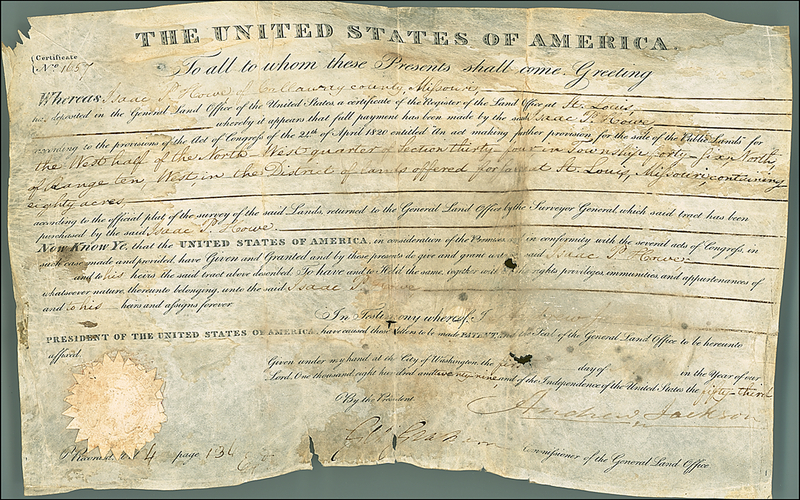 THE UNITED STATES OF AMERICA.
Certificate
No. 1657
To all to whom these Presents shall come, Greeting
Whereas Isaac P. Howe of Callaway county, Missouri,
has deposited in the General Land Office of the United States a certificate of the Register of the Land Office at St. Louis,
whereby it appears that full payment has been made by the said Isaac P. Howe
according to the provisions of the Act of Congress of the 24th of April 1820 entitled An act making further provision for the sale of the Public Lands for
the West half of the North West quarter of Section thirty four in Township forty-six North,
of Range ten, West, in the District of lands offered for sale at St. Louis, Missouri, containing
eighty acres
according to the official plat of the survey of the said Lands, returned to the General Land Office by the Surveyor General, which said tract has been
purchased by the said Isaac P. Howe
Now Know Ye, that the UNITED STATES OF AMERICA, in consideration of the Premises and in conformity with the several acts of Congress, in
such case made and provided, have Given and Granted and by these presents do give and grant unto the said Isaac P. Howe
and to his heirs the said tract above described To have and to Hold the same, together with the rights privileges, immunities, and appurtenances of
whatsoever nature, thereunto belonging, unto the said Isaac P. Howe
and to his heirs and assigns forever.
In Testimony whereof, I
PRESIDENT OF THE UNITED STATES OF AMERICA, have caused these Letters to be made PATENT, and the Seal of the General Land Office to be hereunto
affixed.
Given under my hand at the City of Washington the day of in the Year of our
Lord, One thousand eight hundred and twenty nine and of the Independence of the United States the fifty-third
By the President
Andrew Jackson
Commissioner of the General Land Office
Record 4 page 136